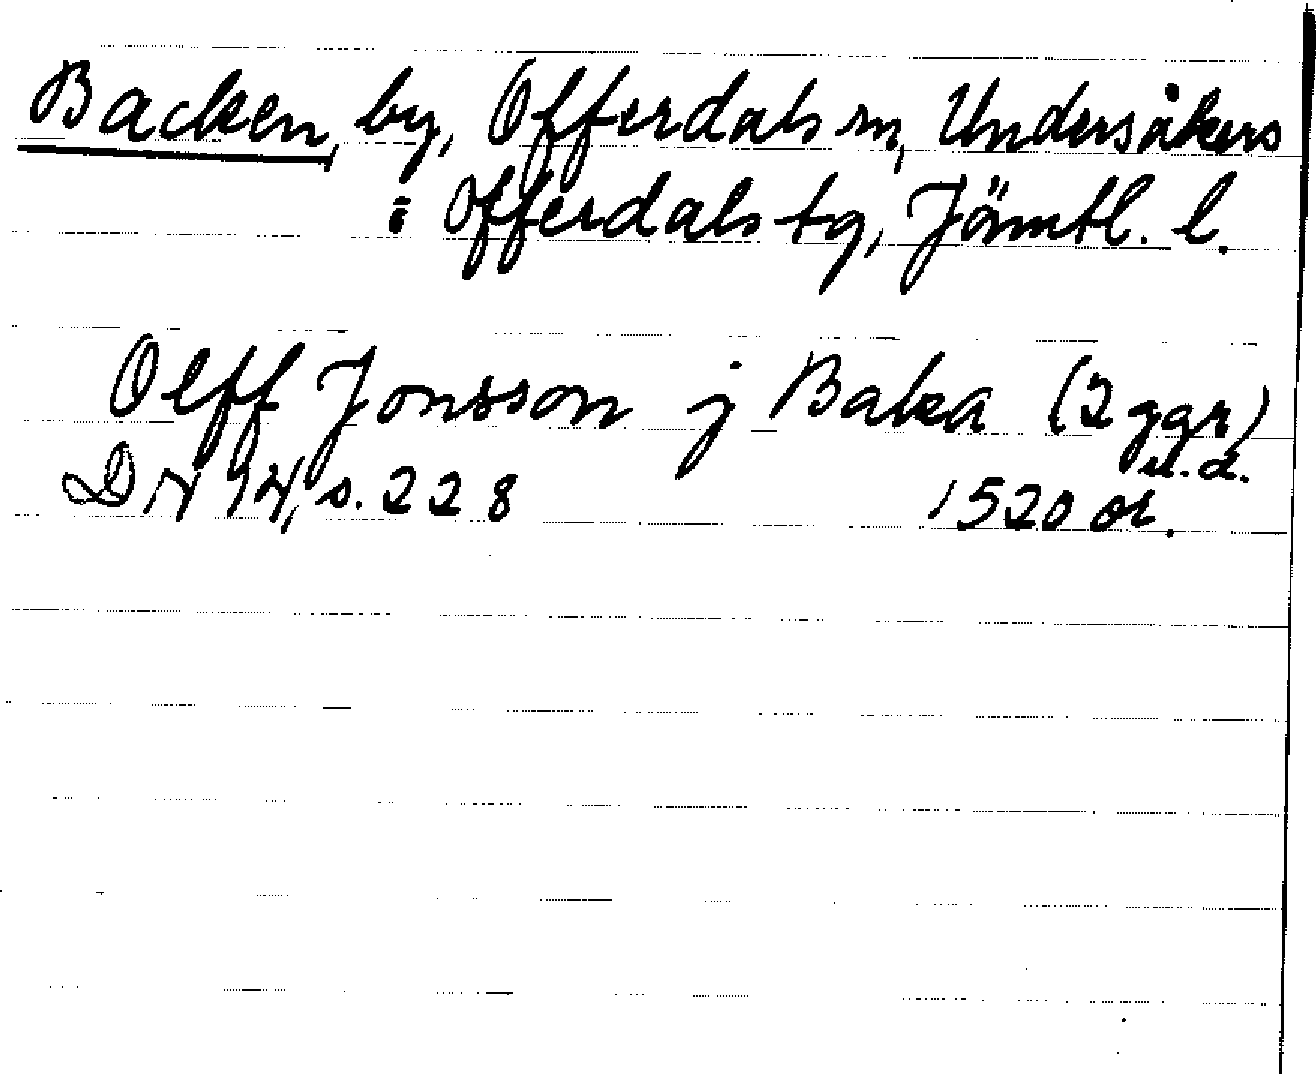 Backen, by, Offerdals sn, Undersåkers
i Offerdals tg, Jämtl. l.
Olff Jonsson j Baka (2 ggr)
u.d.
DN 14, s. 228 1520 or.